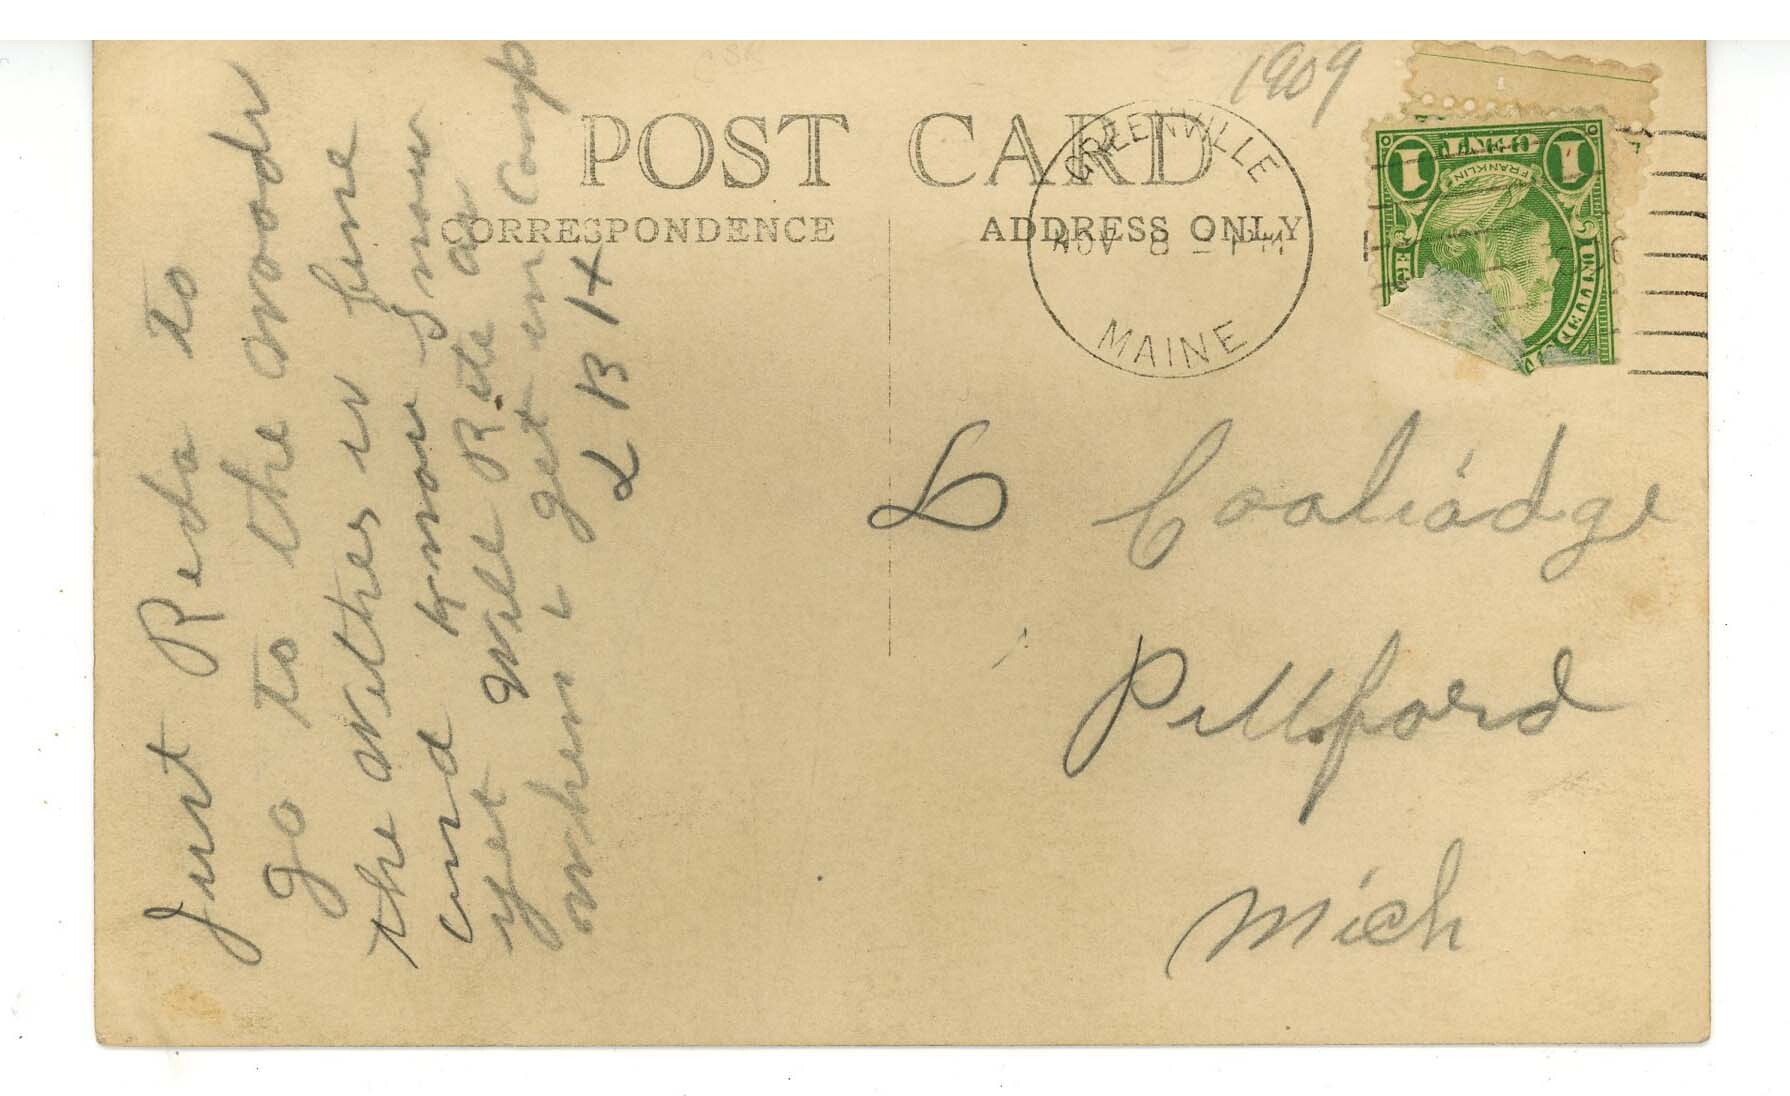 1909
POST CARD
CORRESPONDENCE
ADDRESS ONLY
GREENVILLE
NOV 8 - 1 PM
MAINE
1 CENT 1
FRANKLIN
Just Reda to
go to the woods
the wethes is fine
and know snow
yet will Rite as
when i get in camp
L B H
D Coaliadge
Pillford
Mich